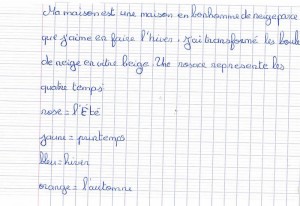 Ma maison est une maison en bonhomme de neige parce
que j'aime en faire l'hiver. J'ai transformé les boule
de neige en vitre beige. Une rosace represente les
quatre temps
rose = l'Eté
jaune = printemps
bleu = hiver
orange = l'automne